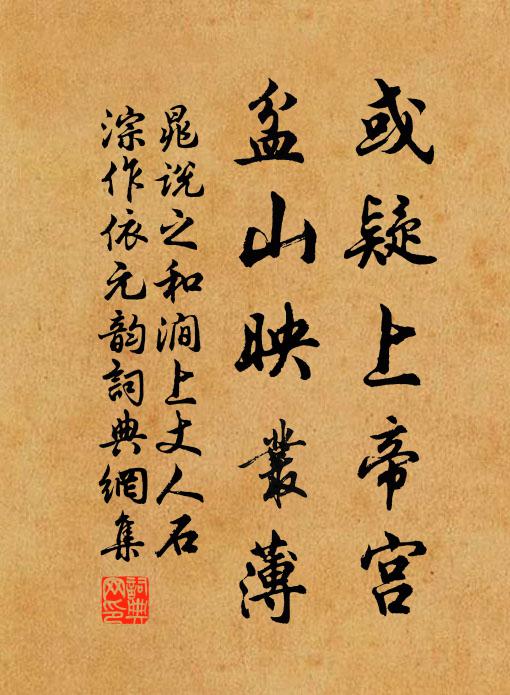 或疑上帝宫
盆山映叢薄
晁说之和涧上丈人石
淙作依元韵詞典網集
詞典網印